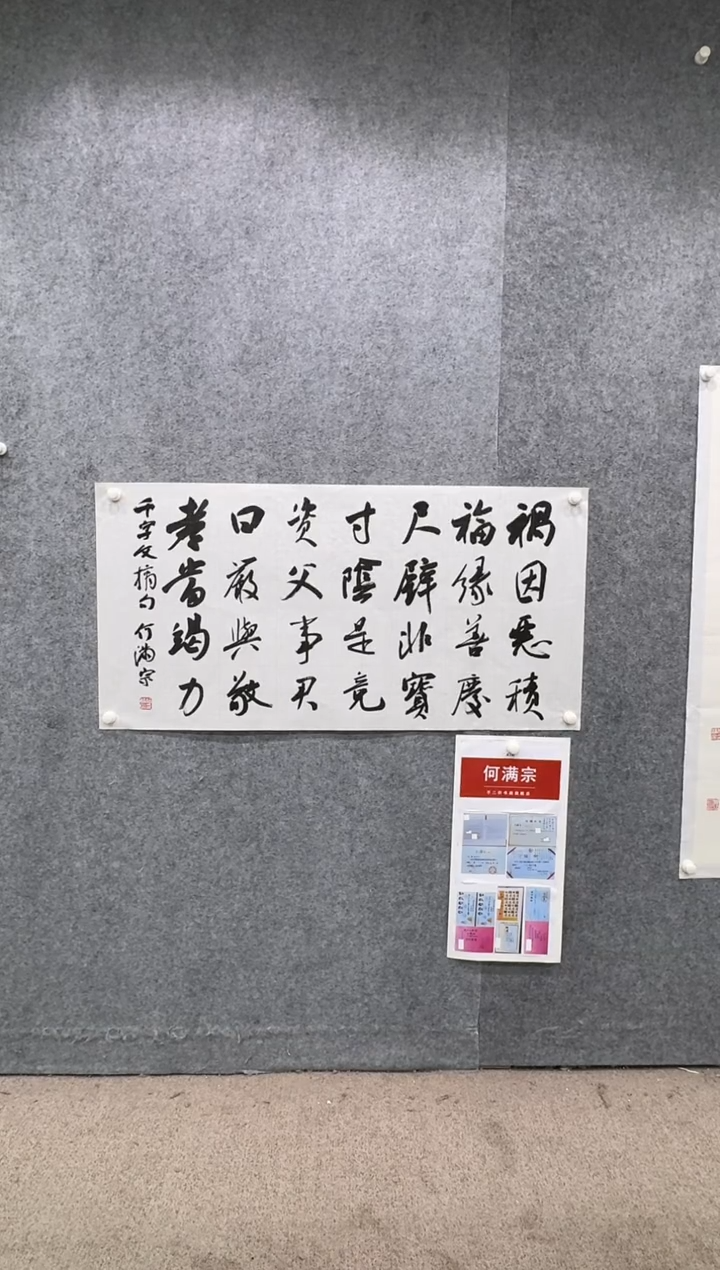 禍因惡積
福緣善慶
尺璧非寶
寸陰是竞
资父事君
曰嚴與敬
孝當竭力
千字文摘句 何满宗
何满宗